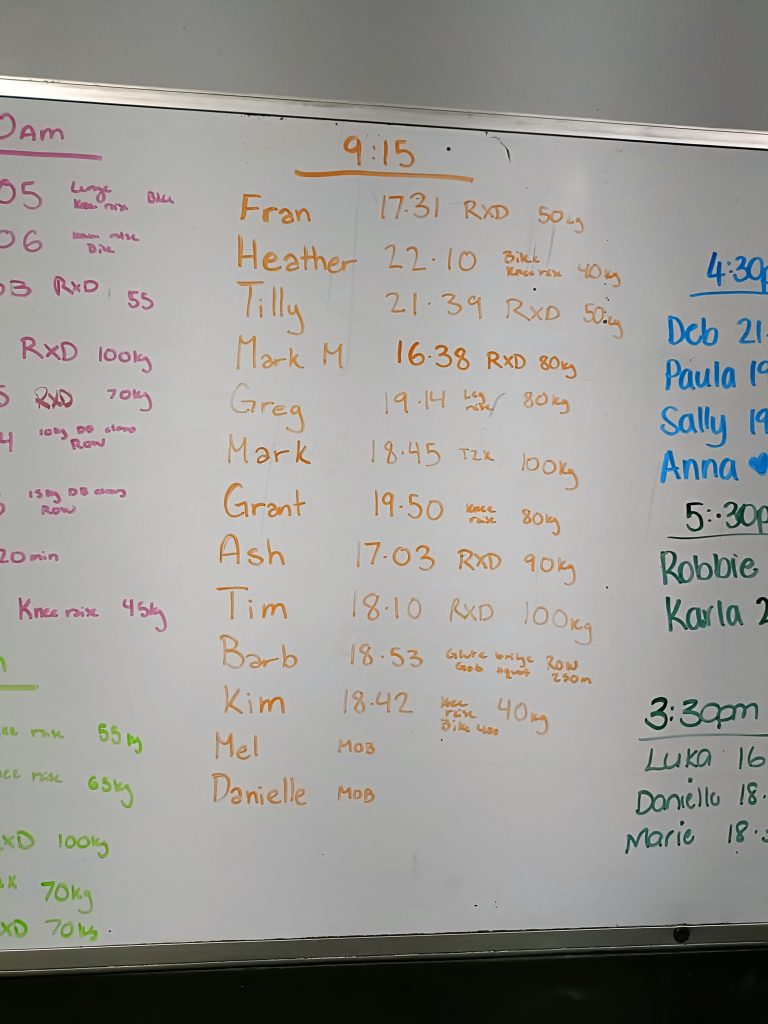 0AM
05 Lunge Knee raise Bike
06 Knee raise Bike
53 RXD 55
RXD 100kg
5 RXD 70kg
4 10kg DB clean ROW
15kg DB ROW
20min
Knee raise 45kg
knee raise 55kg
knee raise 65kg
RXD 100kg
70kg
RXD 70kg
9:15
Fran 17.31 RXD 50kg
Heather 22.10 Bike Knee raise 40kg
Tilly 21.39 RXD 50kg
Mark M 16.38 RXD 80kg
Greg 19.14 Leg raise 80kg
Mark 18.45 T2K 100kg
Grant 19.50 knee raise 80kg
Ash 17.03 RXD 90kg
Tim 18.10 RXD 100kg
Barb 18.53 Glute bridge Gob squat ROW 250m
Kim 18.42 knee raise Bike 400 40kg
Mel MOB
Danielle MOB
4:30p
Deb 21.
Paula 19
Sally 19
Anna
5:30p
Robbie
Karla 2
3:30pm
Luka 16
Danielle 18.
Marie 18.